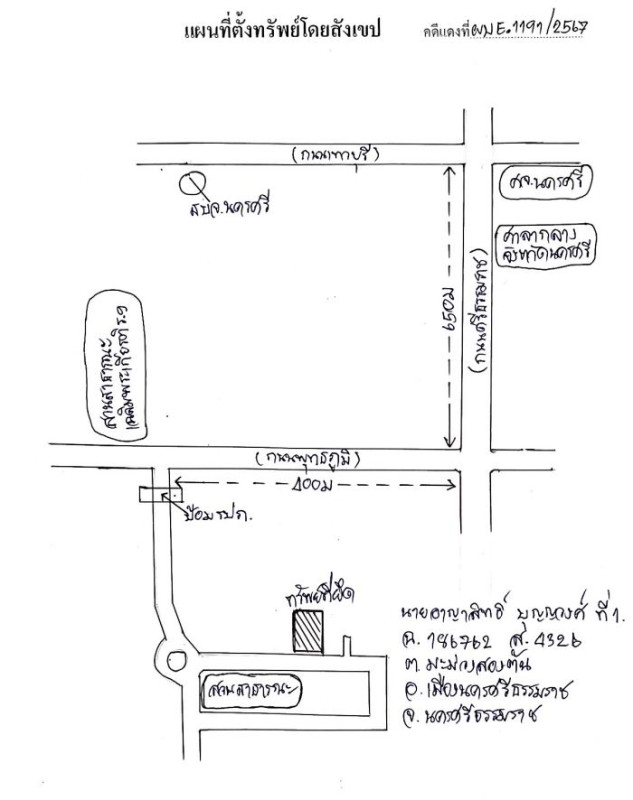 แผนที่ตั้งทรัพย์โดยสังเขป
คดีแดงที่ ผบE.1191/2567
(ถนนท่าบุรี)
ศจ.นครศรี
สปจ.นครศรี
ศาลากลาง
จังหวัดนครศรี
650ม
(ถนนศรีธรรมราช)
สวนสาธารณะ
เฉลิมพระเกียรติ ร.๑
(ถนนพุทธภูมิ)
400ม
ป้อม รปภ.
ทรัพย์ที่ยึด
นายอาญาสิทธิ์ บุญญวงศ์ ที่1.
ฉ. 186762 ส. 4326
ต. มะม่วงสองต้น
อ. เมืองนครศรีธรรมราช
จ. นครศรีธรรมราช
สวนสาธารณะ